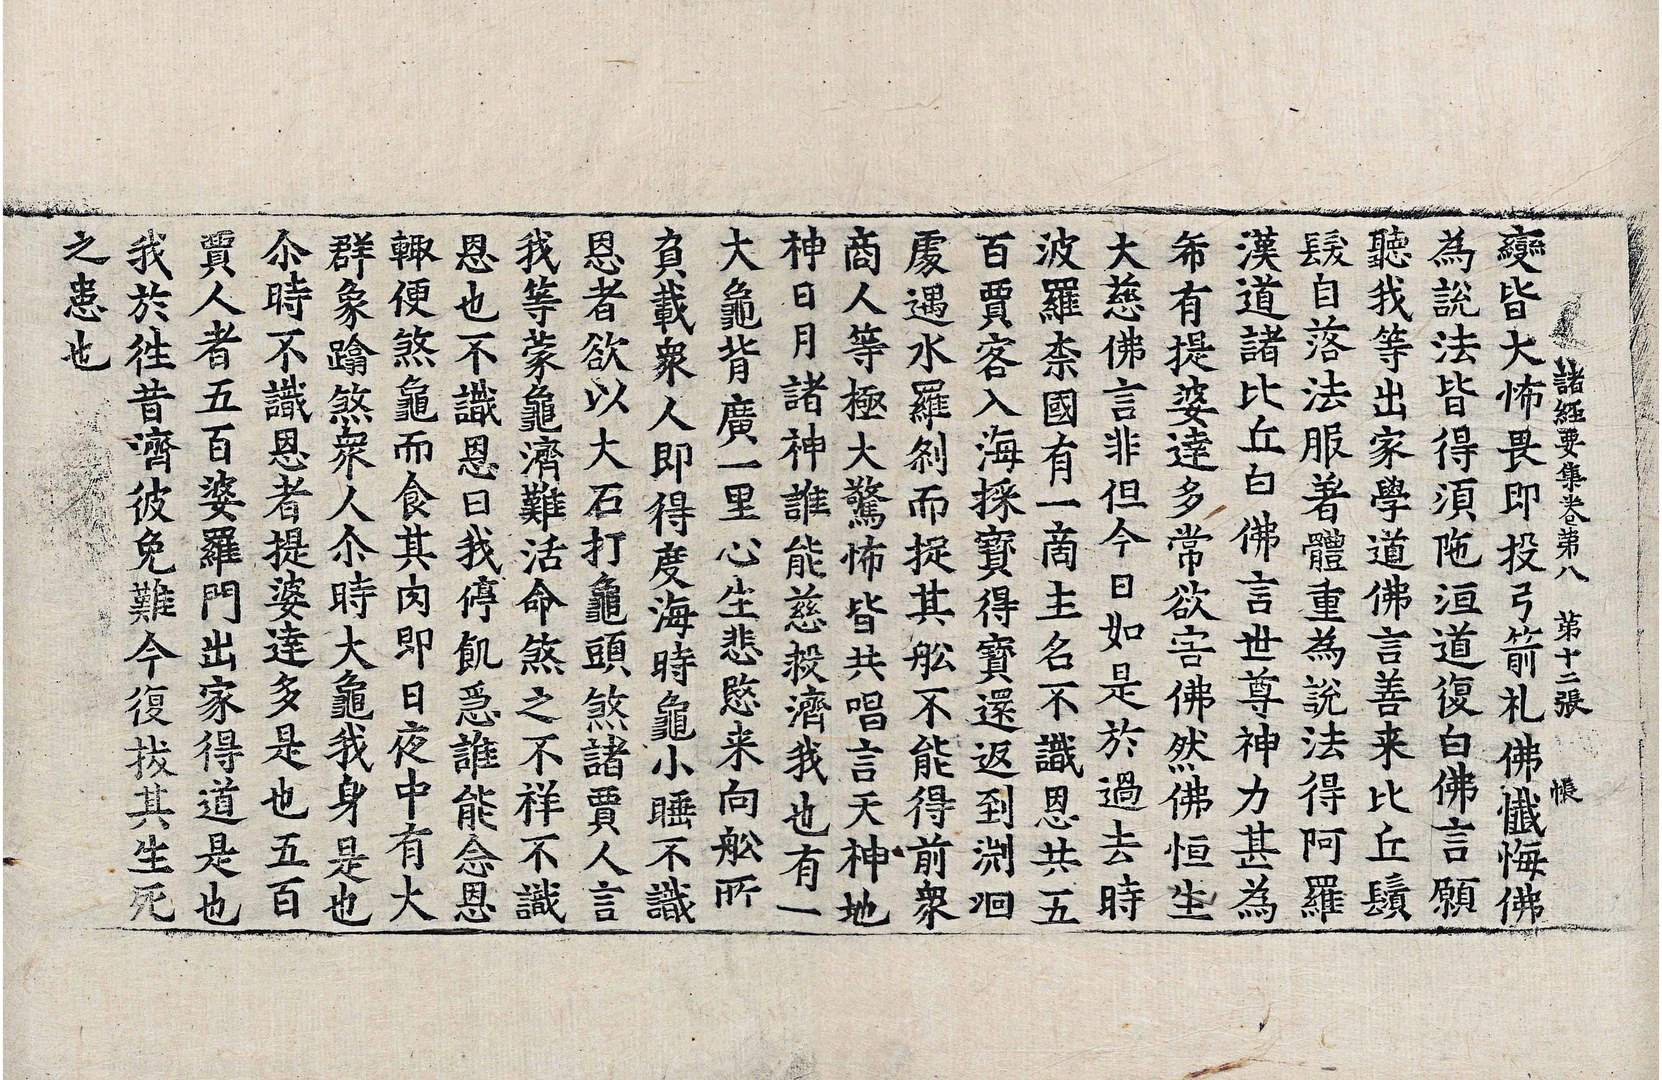 諸經要集卷第八 第十二張 帳
變皆大怖畏即投弓箭礼佛懺悔佛
為說法皆得須陁洹道復白佛言願
聽我等出家學道佛言善来比丘鬚
髮自落法服著體重為說法得阿羅
漢道諸比丘白佛言世尊神力甚為
希有提婆達多常欲害佛然佛恒生
大慈佛言非但今日如是於過去時
波羅柰國有一商主名不識恩共五
百賈客入海採寳得寳還返到渊洄
處遇水羅剎而捉其舩不能得前衆
商人等極大驚怖皆共唱言天神地
神日月諸神誰能慈救濟我也有一
大龜背廣一里心生悲愍来向舩所
負載衆人即得度海時龜小睡不識
恩者欲以大石打龜頭煞諸賈人言
我等蒙龜濟難活命煞之不祥不識
恩也不識恩曰我停飢急誰能念恩
輙便煞龜而食其肉即日夜中有大
群象蹋煞衆人尒時大龜我身是也
尒時不識恩者提婆達多是也五百
賈人者五百婆羅門出家得道是也
我於徃昔濟彼免難今復拔其生死
之患也